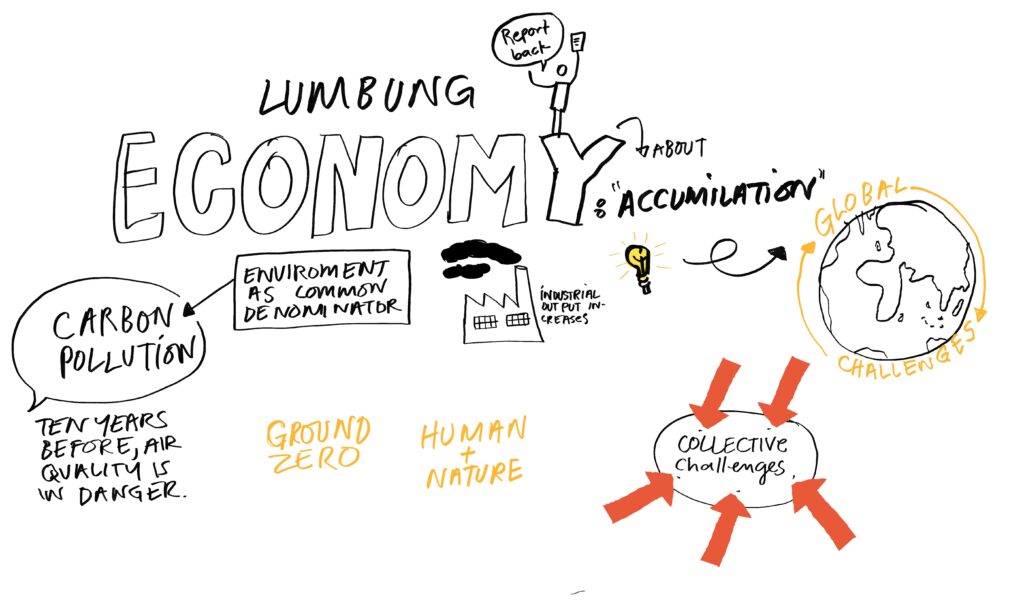 Report
back
LUMBUNG
ECONOMY
ABOUT
: "ACCUMILATION"
GLOBAL
CHALLENGES
ENVIROMENT
AS COMMON
DENOMINATOR
CARBON
POLLUTION
INDUSTRIAL
OUTPUT IN-
CREASES
TEN YEARS
BEFORE, AIR
QUALITY IS
IN DANGER.
GROUND
ZERO
HUMAN
+
NATURE
COLLECTIVE
challenges